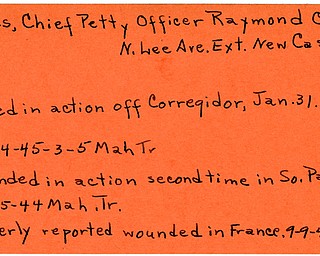 s, Chief Petty Officer Raymond C
N. Lee Ave. Ext. New Cas
ed in action off Corregidor, Jan. 31.
4-45-3-5 Mah Tr
nded in action second time in So. Pa
5-44 Mah. Tr.
erly reported wounded in France. 9-9-4